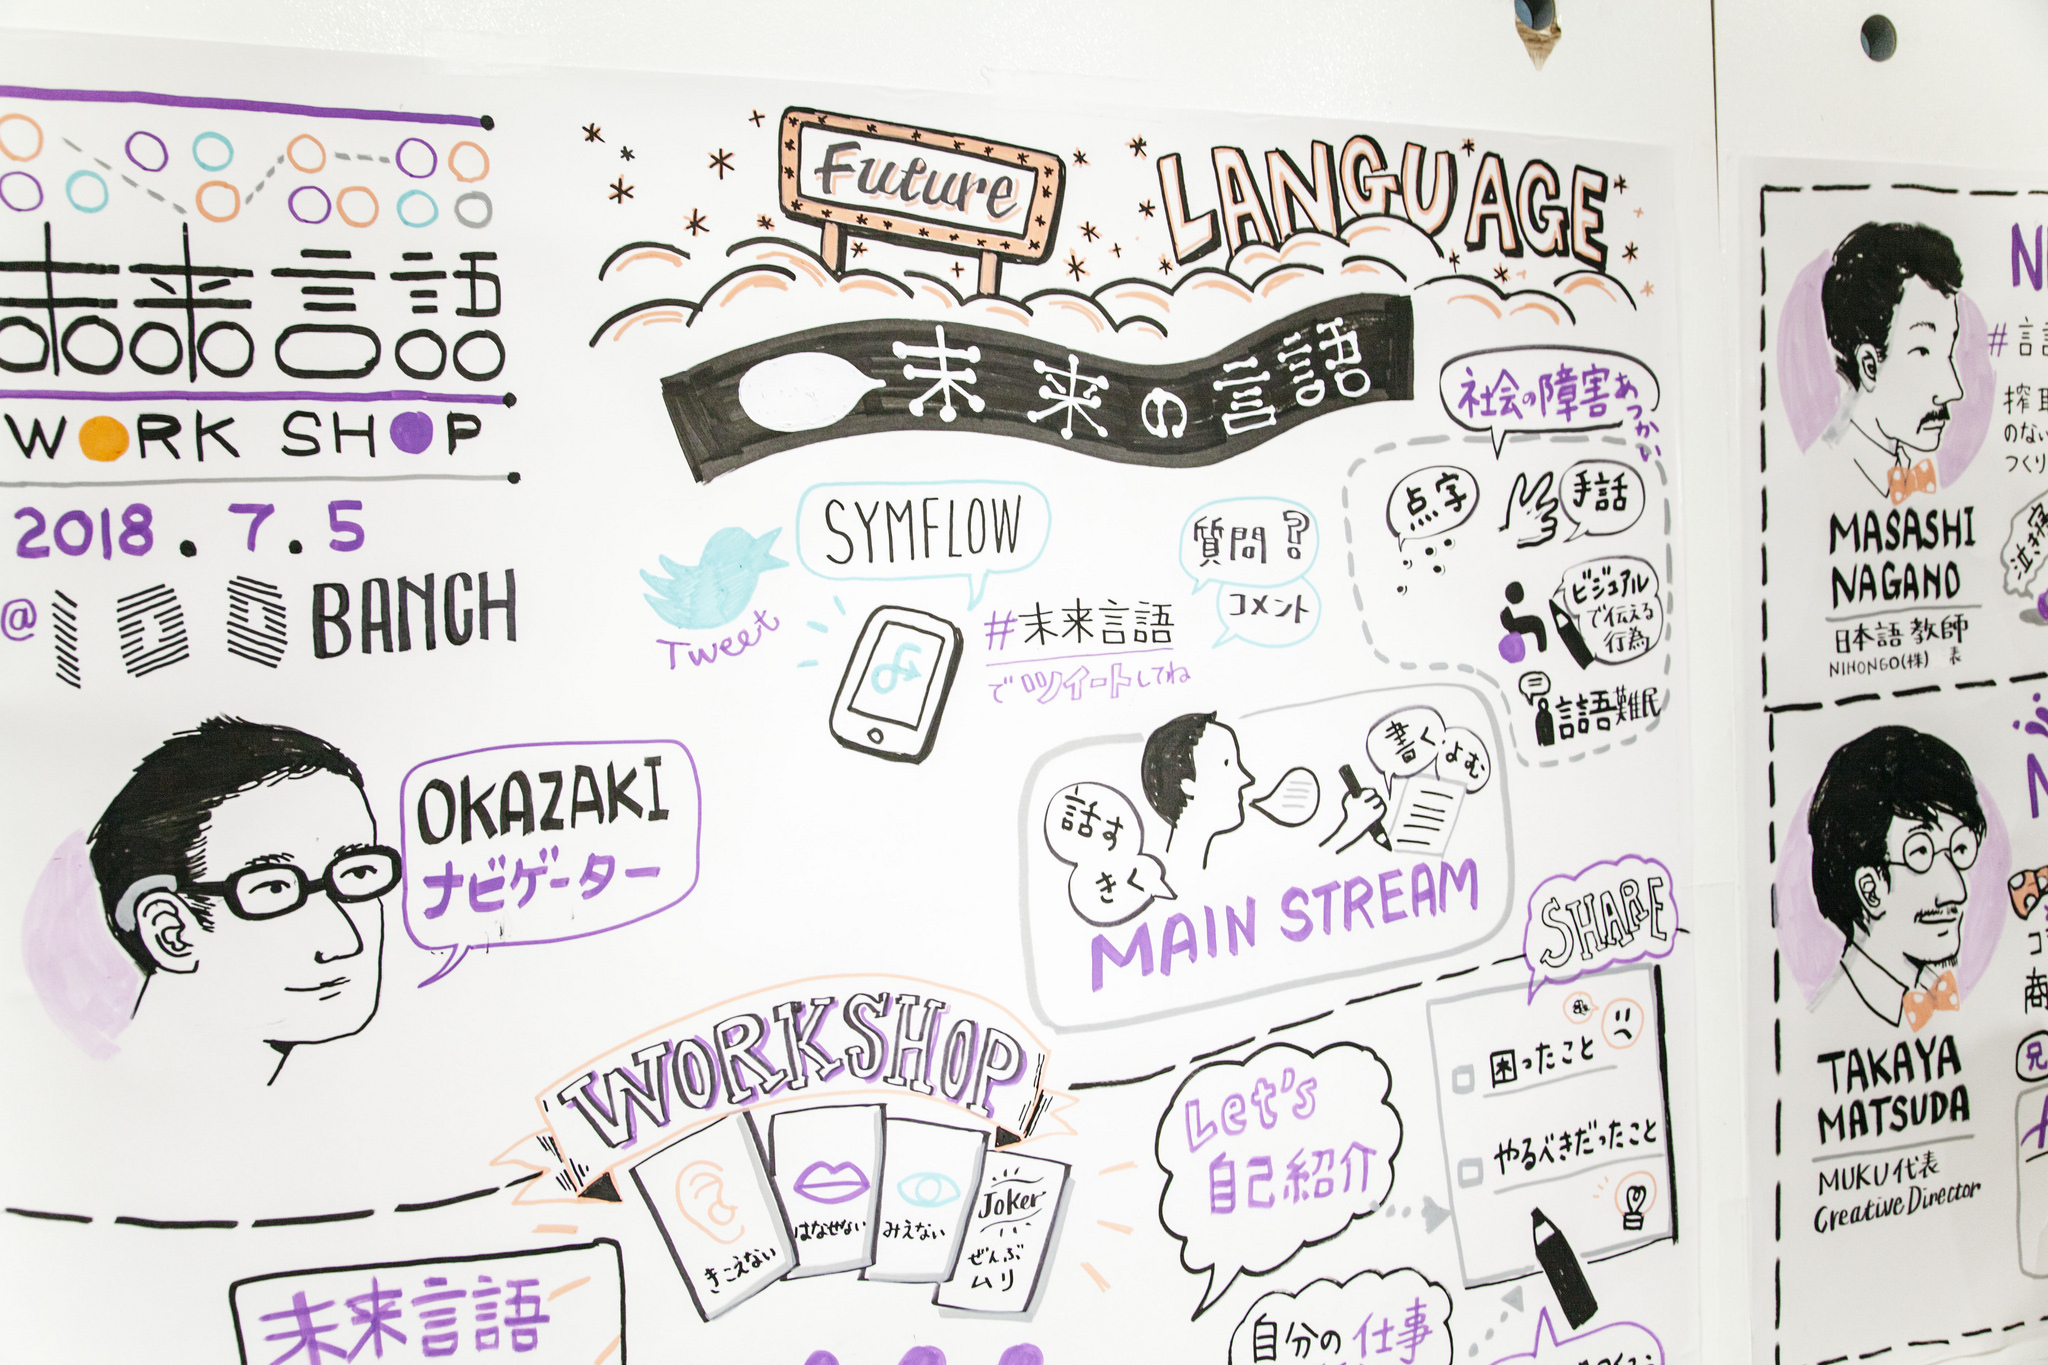 未来言語
WORK SHOP
2018.7.5
@100BANCH
OKAZAKI
ナビゲーター
Future
LANGUAGE
未来の言語
SYMFLOW
Tweet
#未来言語
でツイートしてね
質問?
コメント
社会の障害あつかい
点字
手話
ビジュアル
で伝える
行為
言語難民
話す
きく
書く・よむ
MAIN STREAM
WORKSHOP
きこえない
はなせない
みえない
Joker
ぜんぶ
ムリ
未来言語
Let's
自己紹介
SHARE
困ったこと
やるべきだったこと
自分の仕事
MASASHI
NAGANO
日本語教師
NIHONGO(株)代表
TAKAYA
MATSUDA
MUKU代表
Creative Director
のない
つくり
泣き寝